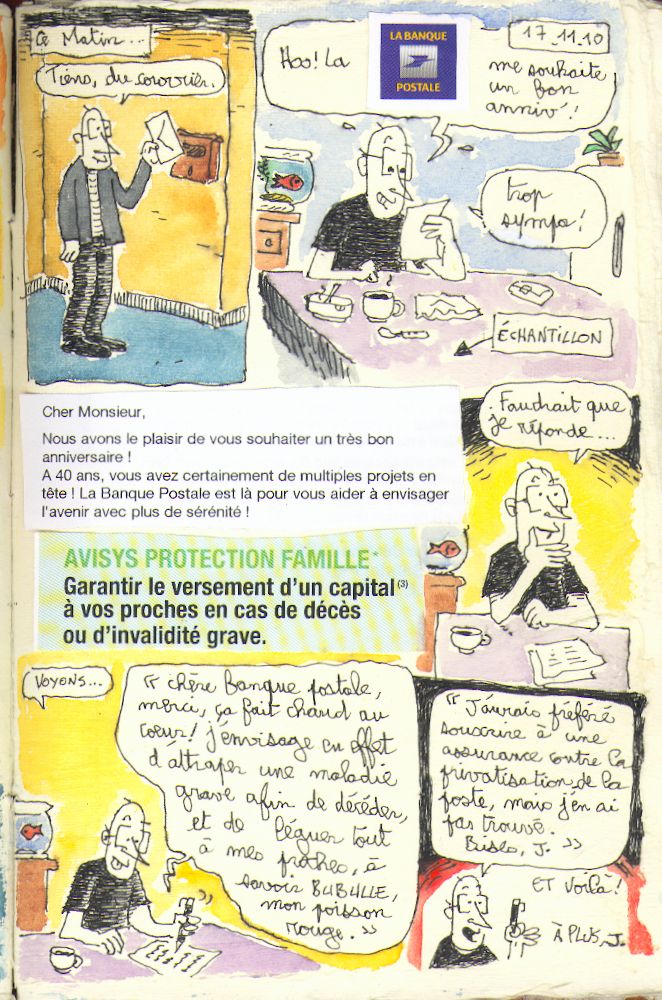 Ce Matin...
Tiens, du courrier.
17_11_10
Hoo! La
LA BANQUE
POSTALE
me souhaite
un bon
anniv'!
trop
sympa!
ÉCHANTILLON
Cher Monsieur,
Nous avons le plaisir de vous souhaiter un très bon
anniversaire !
A 40 ans, vous avez certainement de multiples projets en
tête ! La Banque Postale est là pour vous aider à envisager
l'avenir avec plus de sérénité !
AVISYS PROTECTION FAMILLE*
Garantir le versement d'un capital(3)
à vos proches en cas de décès
ou d'invalidité grave.
Faudrait que
je réponde...
VOYONS...
« chère Banque postale,
merci, ça fait chaud au
coeur! j'envisage en effet
d'attraper une maladie
grave afin de décéder,
et de léguer tout
à mes proches, à
savoir BUBULLE,
mon poisson
rouge. »
« J'aurais préféré
souscrire à une
assurance contre la
privatisation de la
poste, mais j'en ai
pas trouvé.
Bises, J. »
ET VOILÀ!
À PLUS, J.